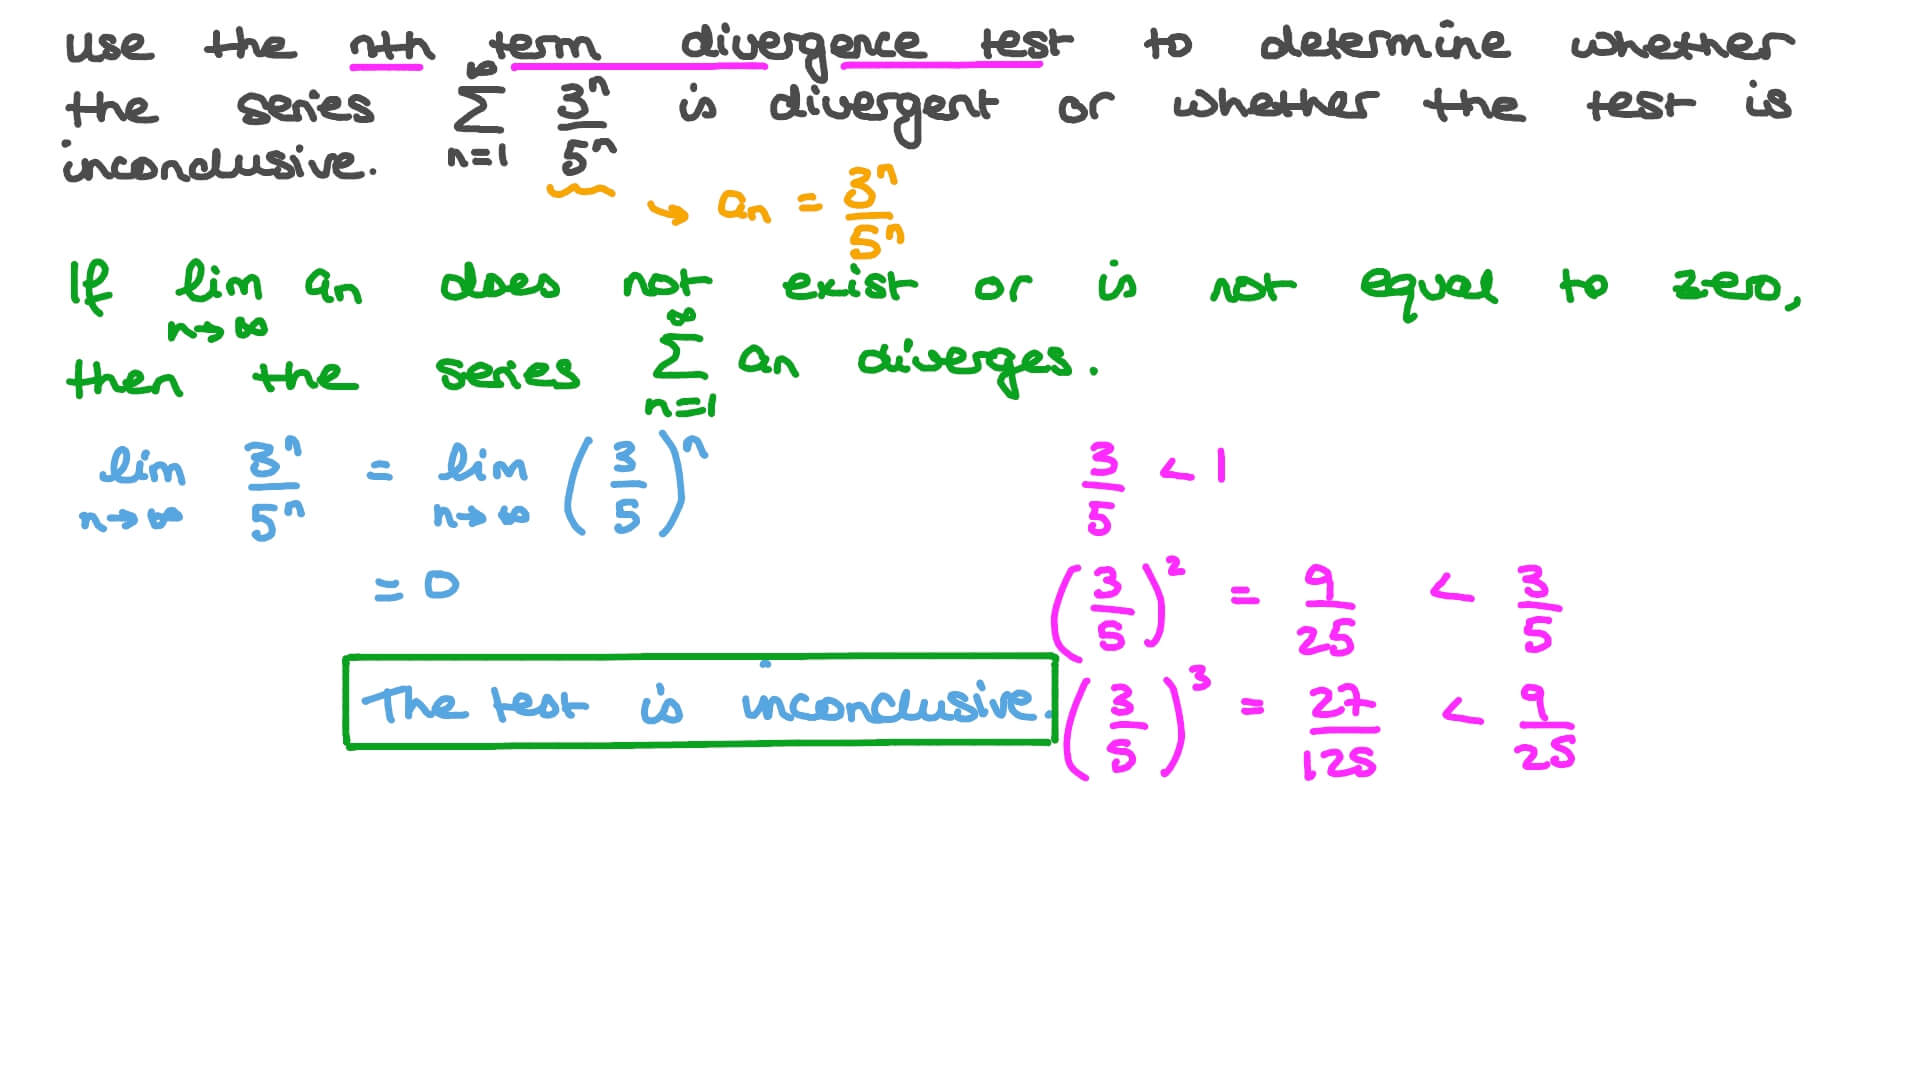 use the nth term divergence test to determine whether
the series ∞ Σ n=1 3ⁿ/5ⁿ is divergent or whether the test is
inconclusive.
→ an = 3ⁿ/5ⁿ
If lim n→∞ an does not exist or is not equal to zero,
then the series ∞ Σ n=1 an diverges.
lim n→∞ 3ⁿ/5ⁿ = lim n→∞ (3/5)ⁿ
3/5 < 1
= 0
(3/5)² = 9/25 < 3/5
The test is inconclusive.
(3/5)³ = 27/125 < 9/25